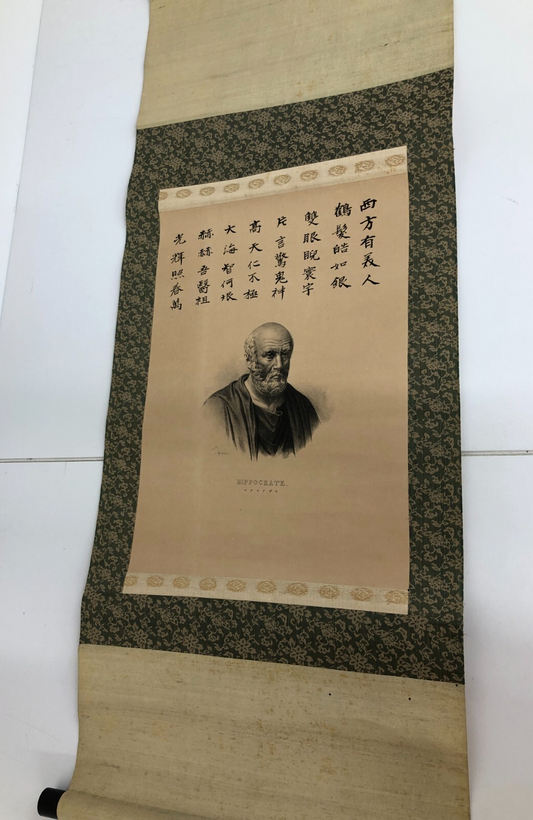 西方有美人
鶴髪皓如銀
雙眼睨寰宇
片言驚鬼神
高天仁不極
大海智何垠
赫赫吾醫祖
光輝照春萬
HIPPOCRATE.